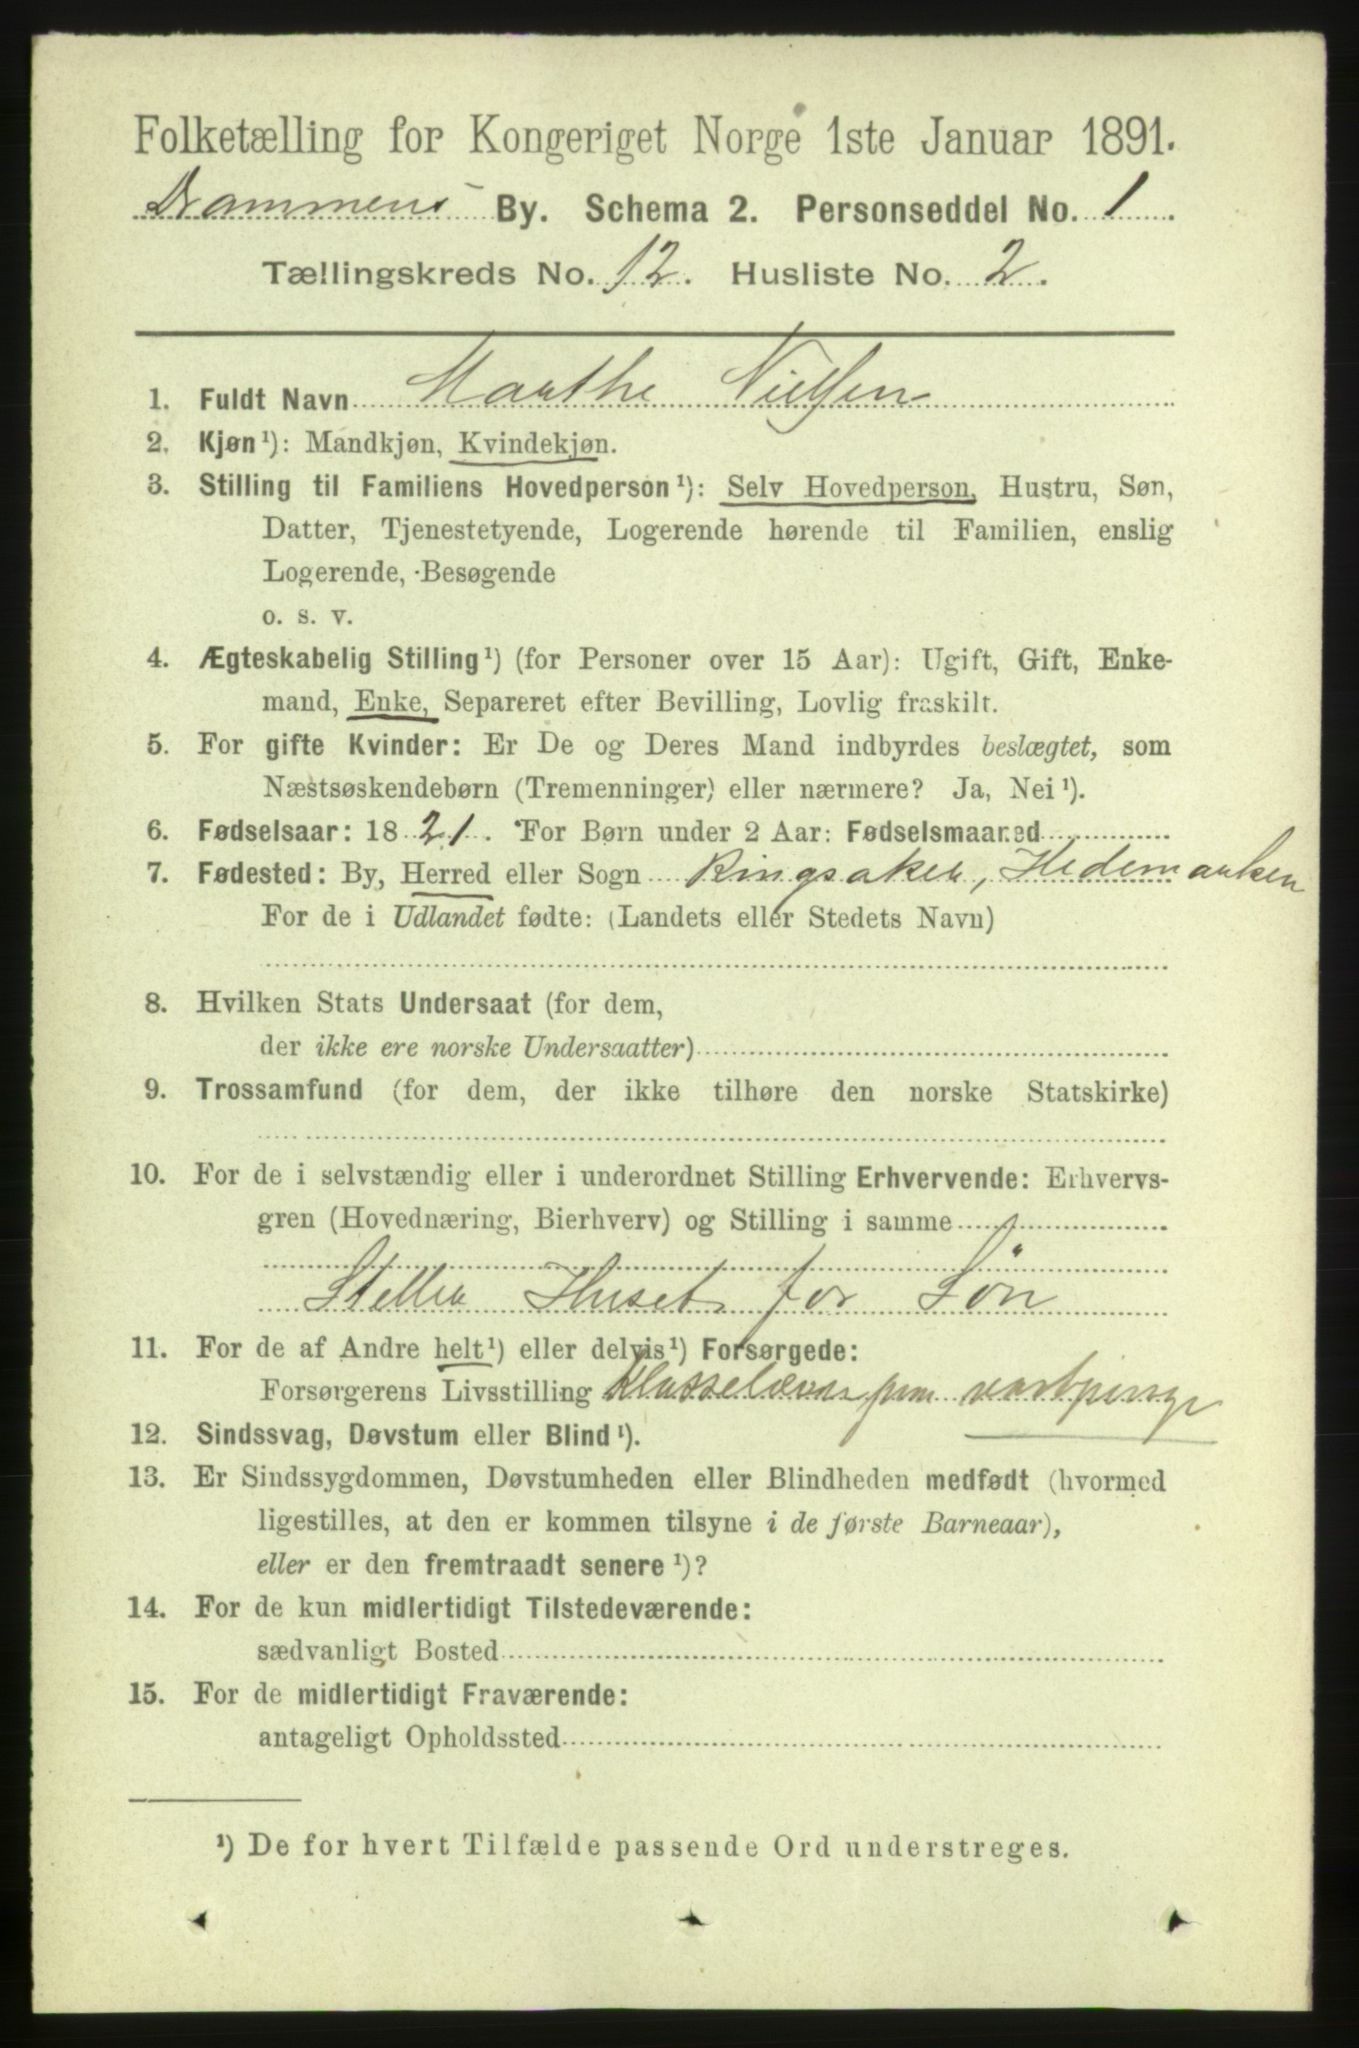 Folketælling for Kongeriget Norge 1ste Januar 1891.
Drammens By. Schema 2. Personseddel No. 1.
Tællingskreds No. 12. Husliste No. 2.
1. Fuldt Navn Marthe Nielsen
2. Kjøn¹): Mandkjøn, Kvindekjøn.
3. Stilling til Familiens Hovedperson¹): Selv Hovedperson, Hustru, Søn,
Datter, Tjenestetyende, Logerende hørende til Familien, enslig
Logerende, Besøgende
o. s. v.
4. Ægteskabelig Stilling¹) (for Personer over 15 Aar): Ugift, Gift, Enke-
mand, Enke, Separeret efter Bevilling, Lovlig fraskilt.
5. For gifte Kvinder: Er De og Deres Mand indbyrdes beslægtet, som
Næstsøskendebørn (Tremenninger) eller nærmere? Ja, Nei¹).
6. Fødselsaar: 1821. For Børn under 2 Aar: Fødselsmaaned
7. Fødested: By, Herred eller Sogn Ringsaker, Hedemarken
For de i Udlandet fødte: (Landets eller Stedets Navn)
8. Hvilken Stats Undersaat (for dem,
der ikke ere norske Undersaatter)
9. Trossamfund (for dem, der ikke tilhøre den norske Statskirke)
10. For de i selvstændig eller i underordnet Stilling Erhvervende: Erhvervs-
gren (Hovednæring, Bierhverv) og Stilling i samme
Steller Huset for Søn
11. For de af Andre helt¹) eller delvis¹) Forsørgede:
Forsørgerens Livsstilling
12. Sindssvag, Døvstum eller Blind¹).
13. Er Sindssygdommen, Døvstumheden eller Blindheden medfødt (hvormed
ligestilles, at den er kommen tilsyne i de første Barneaar),
eller er den fremtraadt senere¹)?
14. For de kun midlertidigt Tilstedeværende:
sædvanligt Bosted
15. For de midlertidigt Fraværende:
antageligt Opholdssted
¹) De for hvert Tilfælde passende Ord understreges.